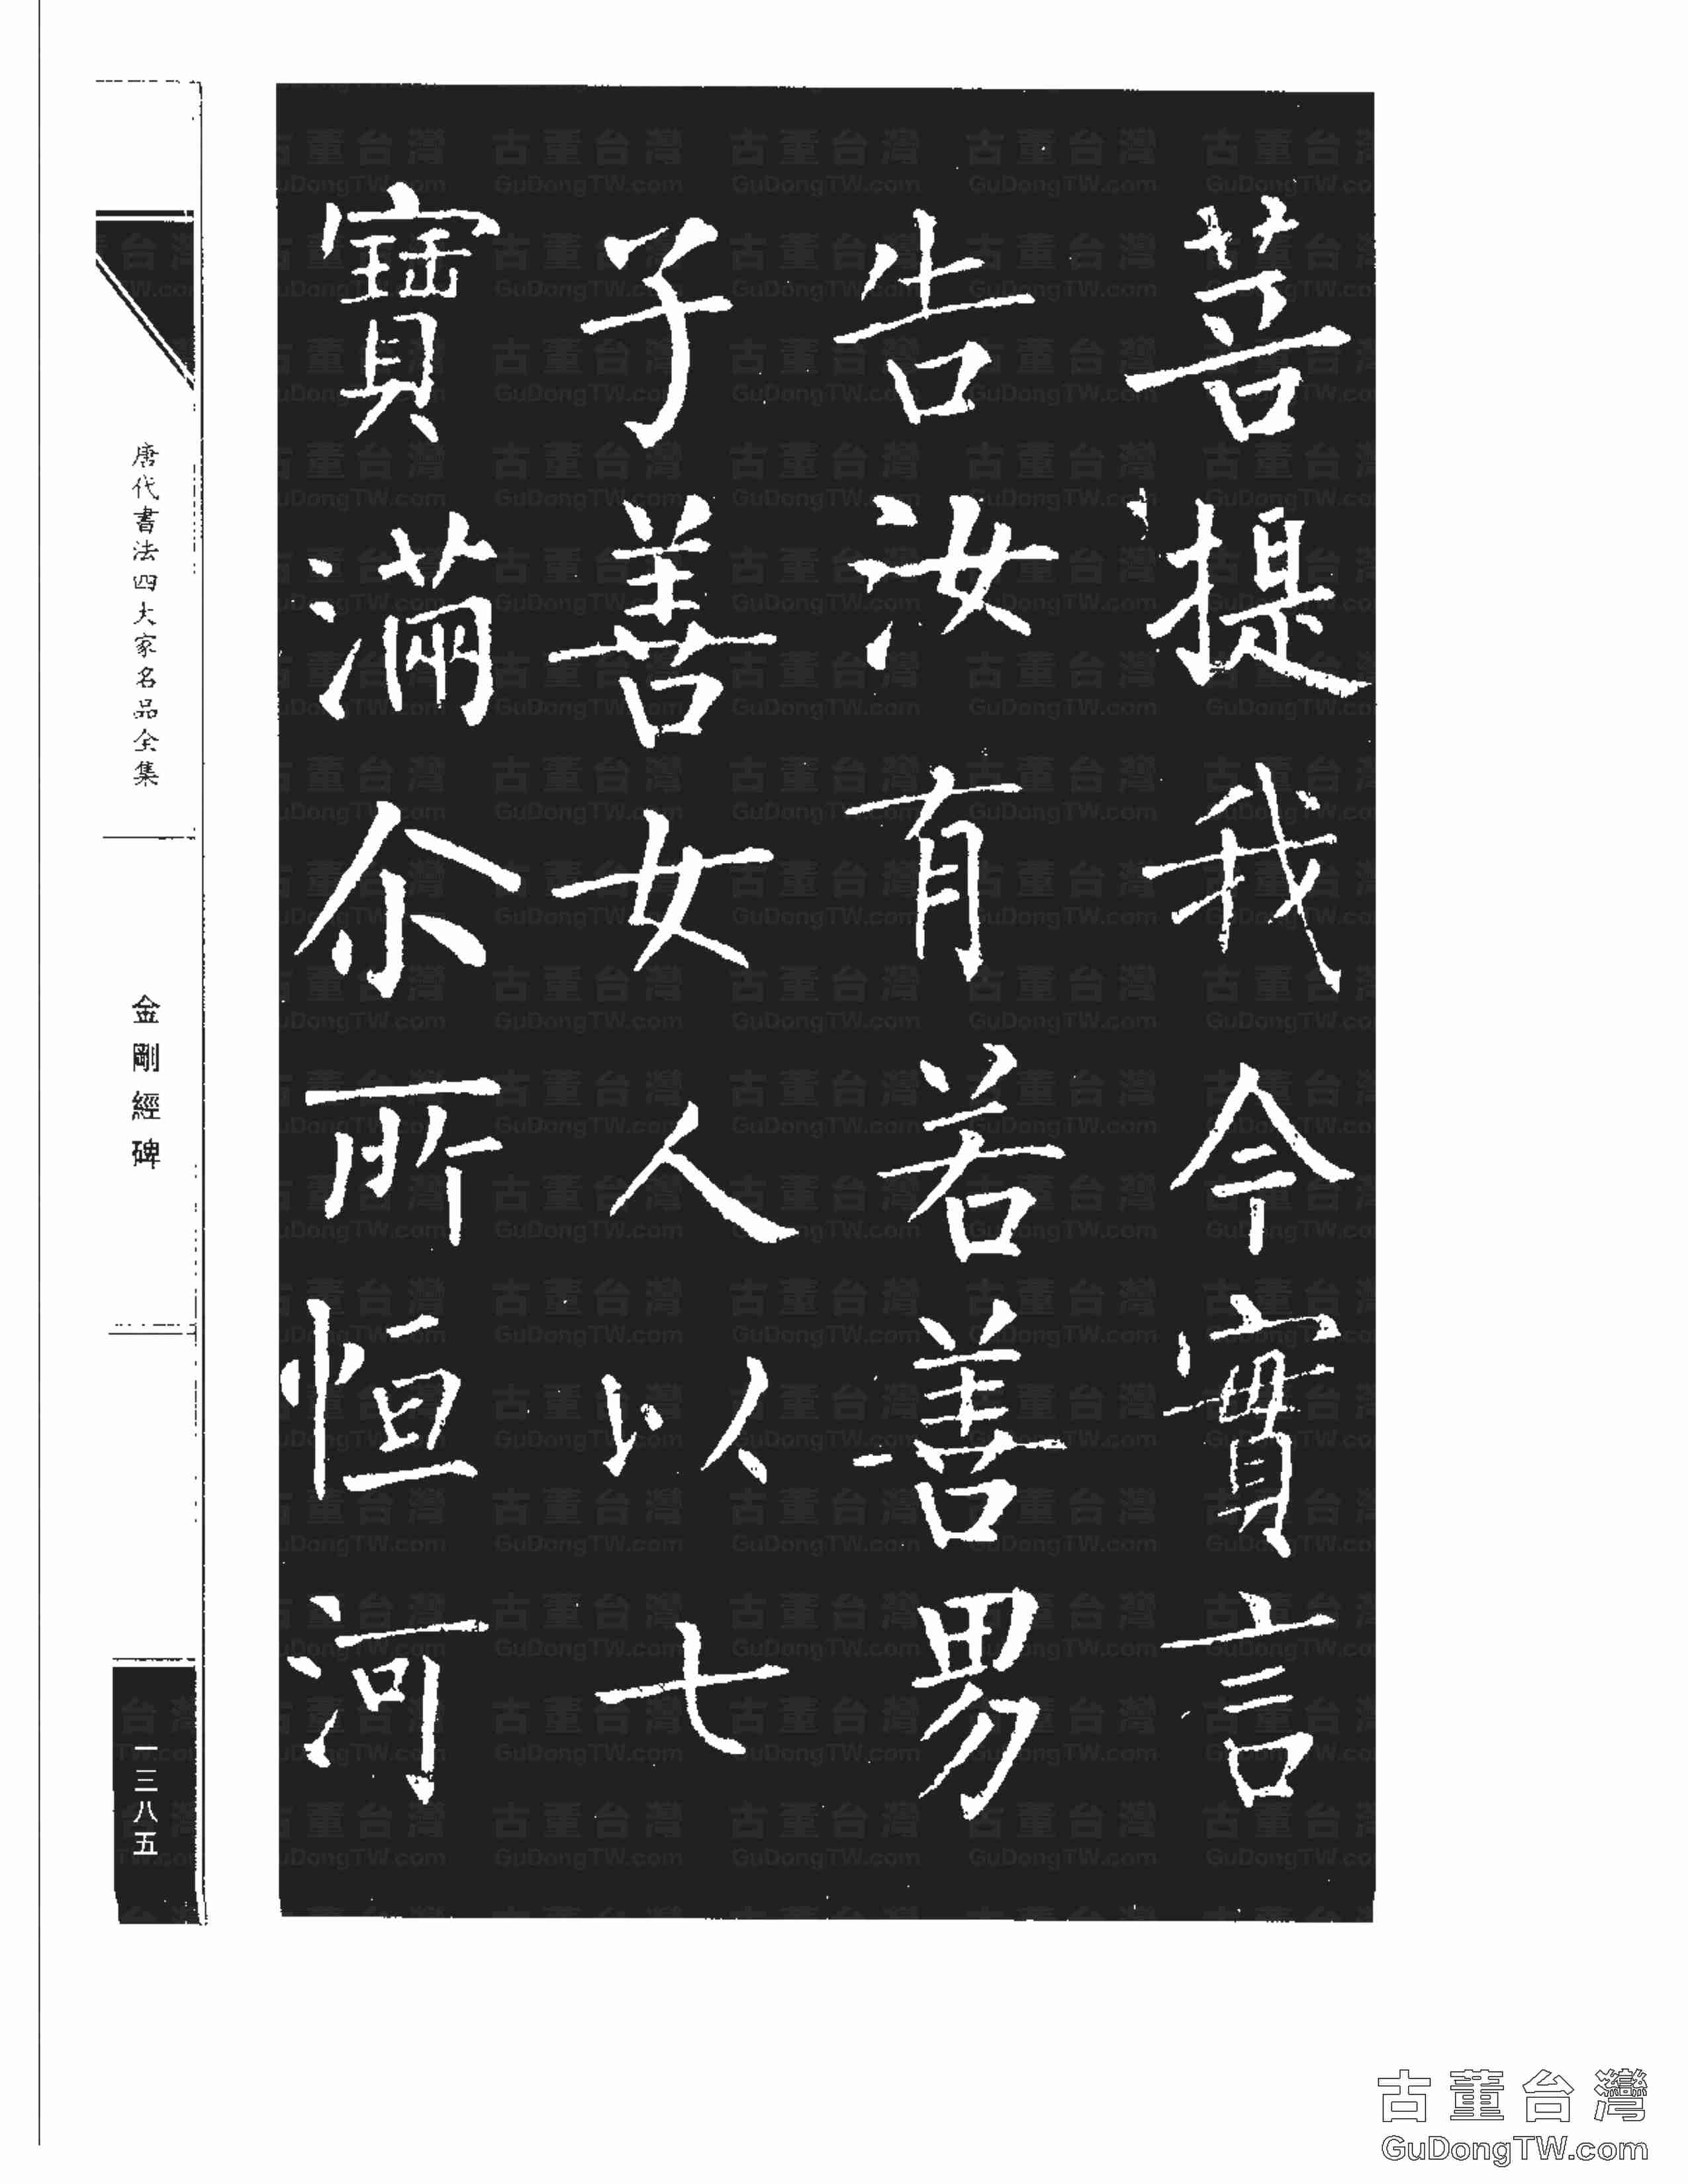 菩提我今實言
告汝有若善男
子善女人以七
寶滿尒所恒河
唐代書法四大家名品全集
金剛經碑
一三八五
古董台灣
GuDongTW.com